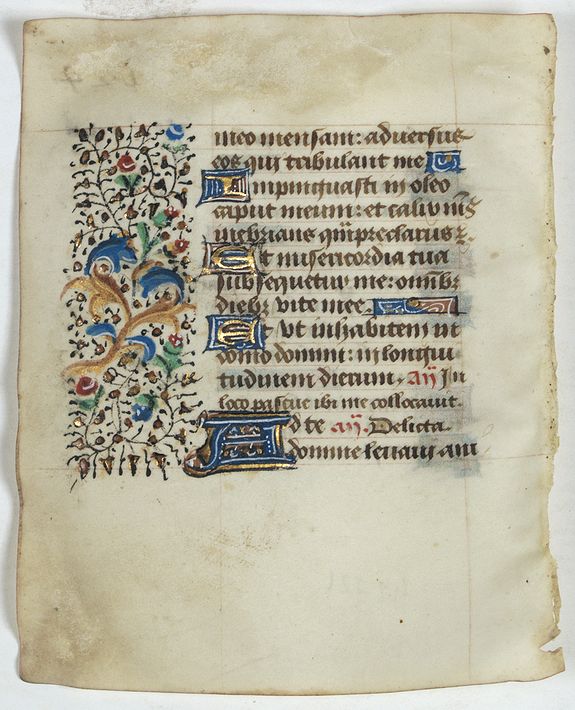 meo mensam: aduersus
eos qui tribulant me
Inpinguasti in oleo
caput meum: et calix
inebrians
Et misericordia tua
subsequetur me: omnib;
dieb; vite mee
Et vt inhabitem in
domo domini: in longitu
tudinem dierum. añ In
loco pascue ibi me collocauit.
Ad te añ. Delicta
domine leuaui ani